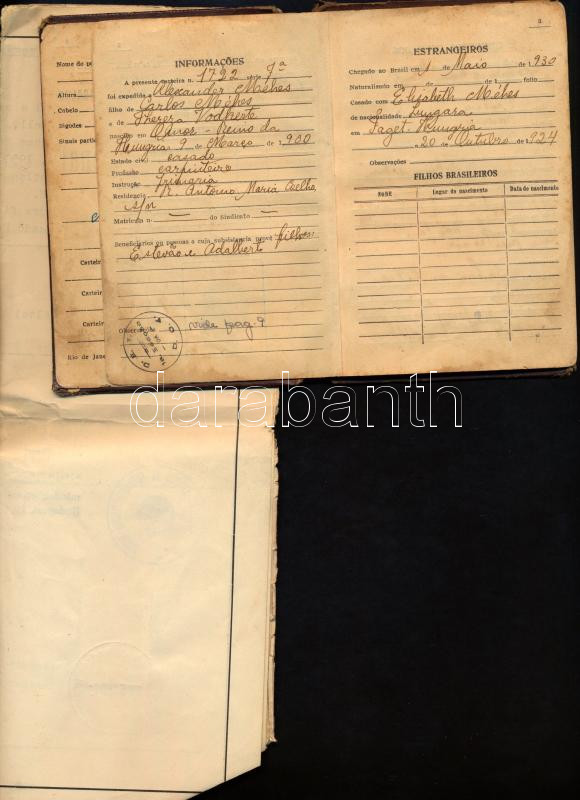 Nome do
Altura
Cabelo
Bigodes
Sinais partic
Carteir
Carteir
Carteir
Rio de Jane
INFORMAÇÕES
A presente carteira n. 1792 série 7ª
foi expedida a Alexander Méhes
filho de Carlos Méhes
e de Thereza Vodherte
nascido em Reino da
Hungria 9 de Março de 1.900
Estado civil casado
Profissão carpinteiro
Instrução primaria
Residencia R. Antonio Maria Coelho
s/n
Matricula n. — do Sindicato —
Beneficiarios ou pessoas a cuja subsistencia provê filhos:
Estevão e Adalberto
Observações vide pag. 9
3
ESTRANGEIROS
Chegado ao Brasil em 1 de Maio de 1.930
Naturalizado em de de 1 folio
Casado com Elizabeth Méhes
de nacionalidade hungara
em Faget. Hungria
a 20 de Outubro de 1.924
Observações
FILHOS BRASILEIROS
NOME Lugar do nascimento Data do nascimento
darabanth